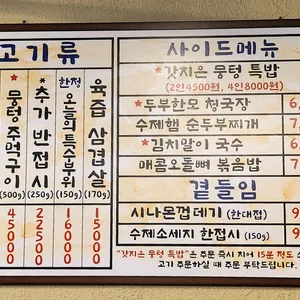 고기류
*뭉텅 주먹구이 (500g) 45000
*추가 반접시 (250g) 22000
한정 오늘의 특수부위 (150g) 16000
육즙 삼겹살 (170g) 15000
사이드메뉴
*갓지은 뭉텅 특밥
(2인4500원, 4인8000원)
*두부한모 청국장
수제햄 순두부찌개
*김치말이 국수
매콤오돌뼈 볶음밥
곁들임
시나몬껍데기 (한대접) 9
수제소세지 한접시 (150g) 9
"갓지은 뭉텅 특밥"은 주문 즉시 지어 15분 정도
고기 주문하실 때 주문 부탁드립니다